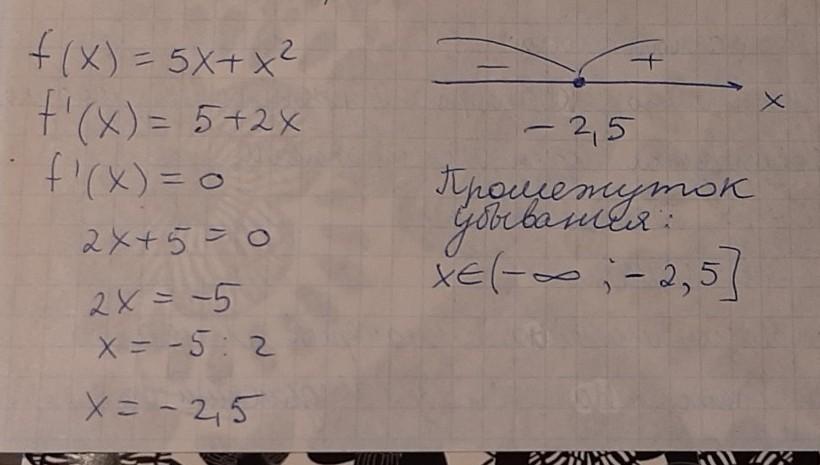 f(x) = 5x + x²
f'(x) = 5 + 2x
f'(x) = 0
2x + 5 = 0
2x = -5
x = -5 : 2
x = -2,5
- +
x
- 2,5
Промежуток
убывания:
x ∈ (-∞ ; - 2,5]